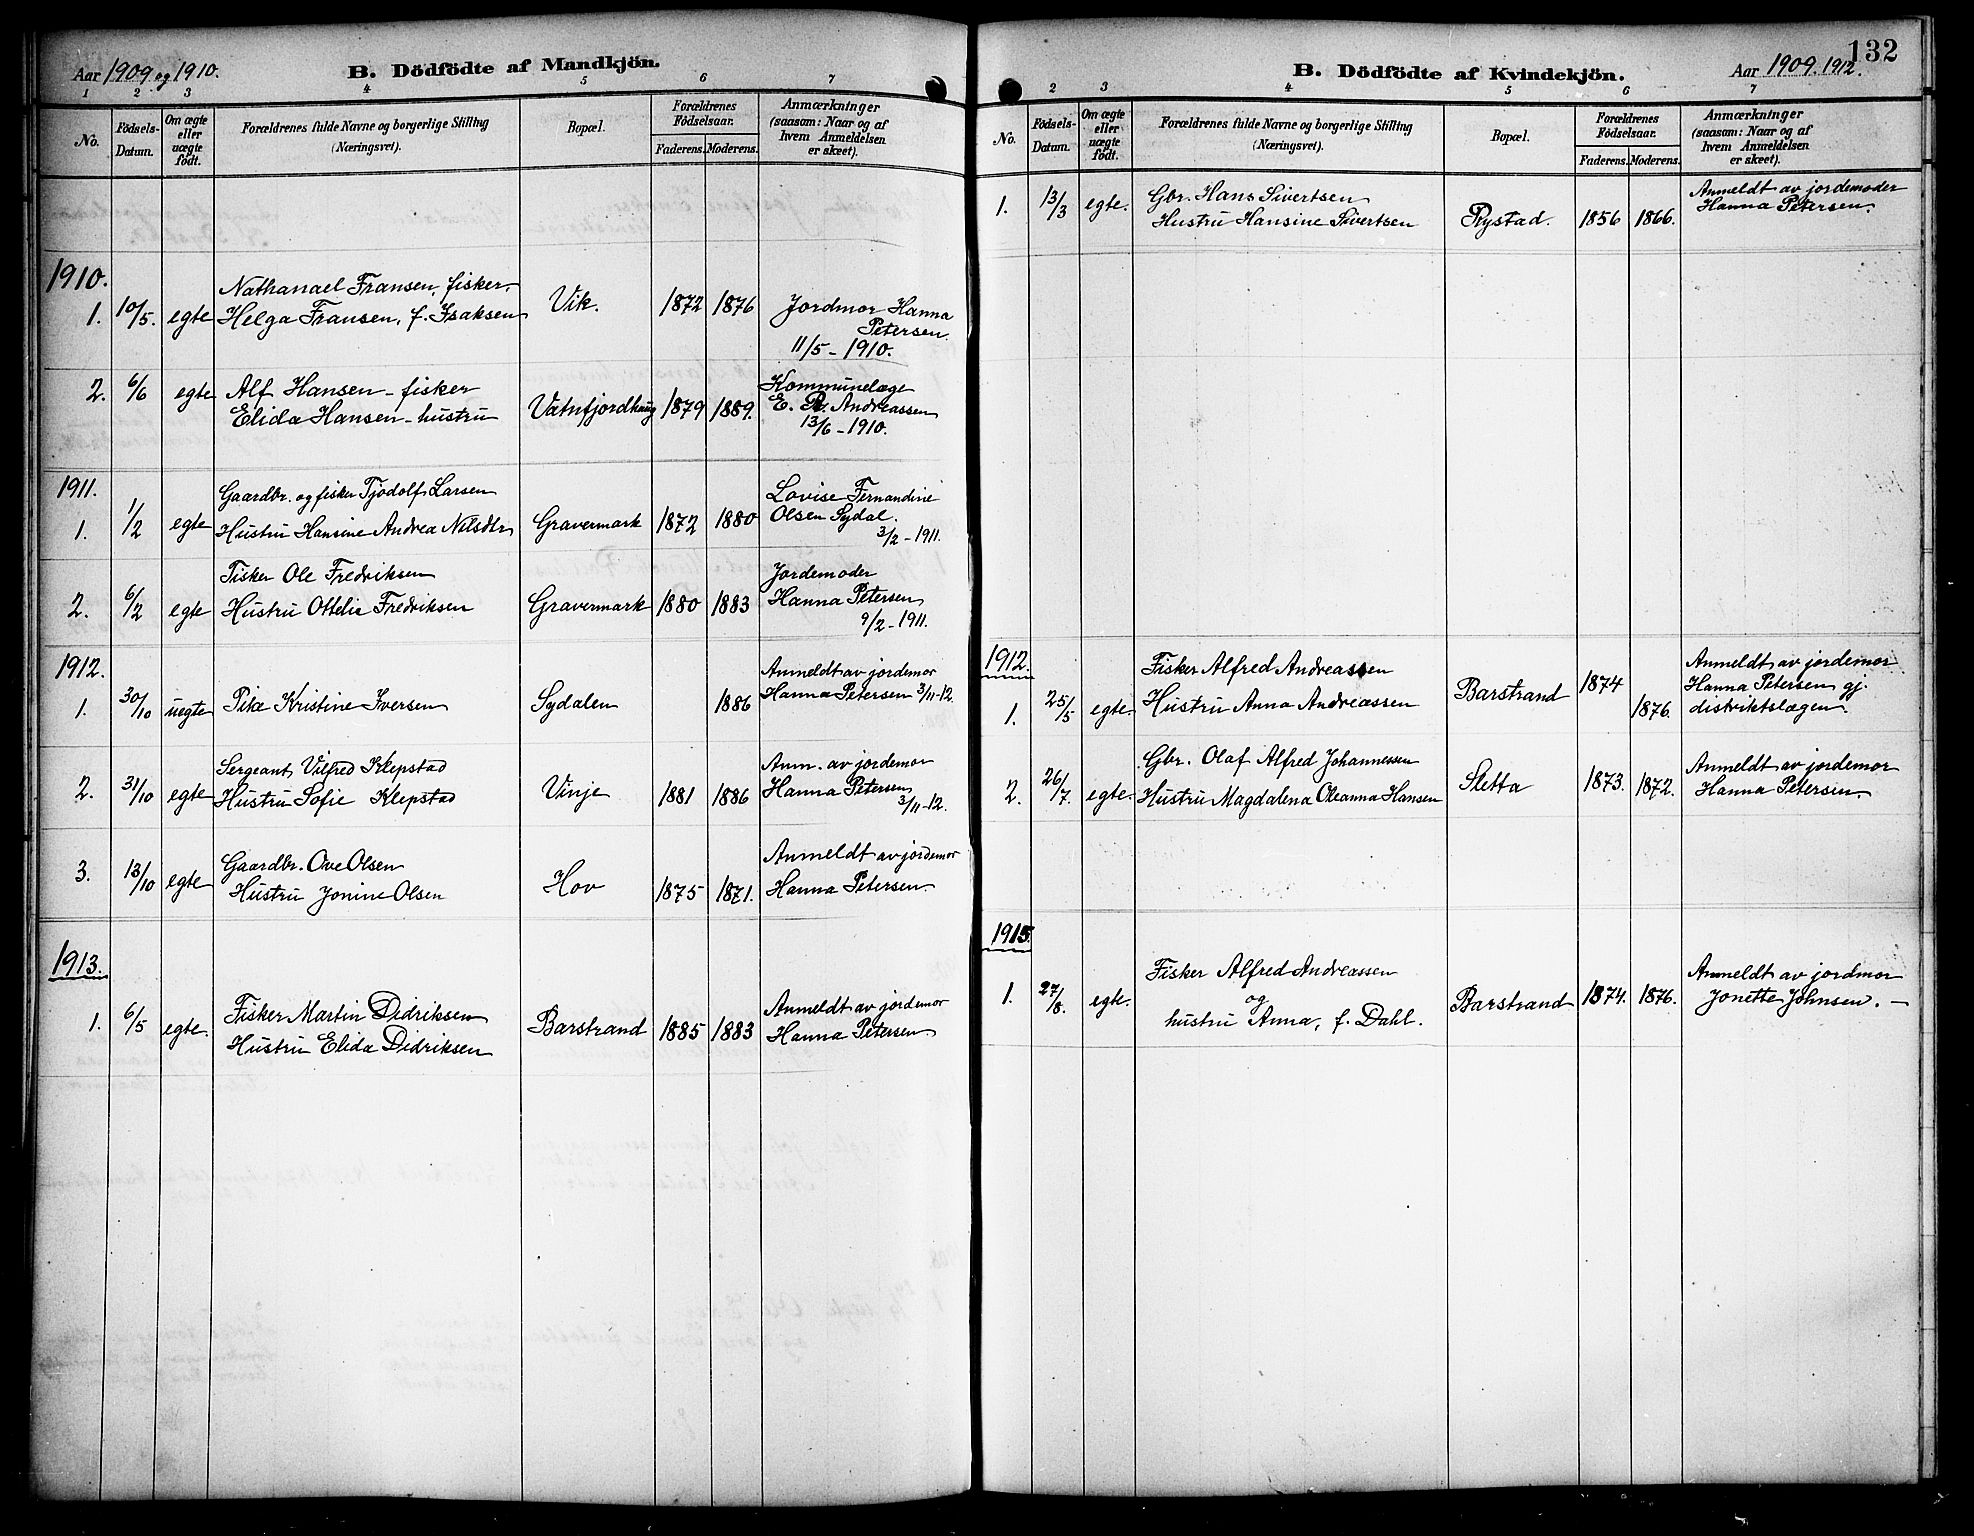 Aar 1909 og 1910.
B. Dödfödte af Mandkjön.
1 2 3 4 5 6 7
No.
Födsels-
Datum.
Om ægte
eller
uægte
födt.
Forældrenes fulde Navne og borgerlige Stilling
(Næringsvei).
Bopæl.
Forældrenes
Födselsaar.
Faderens. Moderens.
Anmærkninger
(saasom: Naar og af
hvem Anmeldelsen
er skeet).
1910.
1. 10/5. egte
Nathanael Fransen, fisker,
Helga Fransen, f. Isaksen
Vik. 1872 1876
Jordmor Hanna
Petersen
11/5 - 1910.
2. 6/6 egte
Alf Hansen - fisker
Elida Hansen - hustru
Vatnfjordhaug 1879 1889.
Kommunelæge
E. R. Andreassen
13/6 - 1910.
1911.
1. 1/2 egte
Gaardbr. og fisker Tjodolf Larsen
Hustru Hansine Andrea Nilsdtr
Gravermark 1872 1880
Lovise Fernandine
Olsen Sydal.
3/2 - 1911.
2. 6/2 egte
Fisker Ole Fredriksen
Hustru Ottelie Fredriksen
Gravermark 1880 1883
Jordemoder
Hanna Petersen
9/2 - 1911.
1912.
1. 30/10 uegte
Pike Kristine Iversen
Sydalen 1886
Anmeldt av jordemor
Hanna Petersen 3/11-12.
2. 31/10 egte
Sergeant Vilfred Klepstad
Hustru Sofie Klepstad
Vinje 1881 1886
Anm. av jordemor
Hanna Petersen
3/11-12.
3. 13/10 egte
Gaardbr. Ove Olsen
Hustru Jonine Olsen
Hov 1875 1871.
Anmeldt av jordemor
Hanna Petersen.
1913.
1. 6/5 egte.
Fisker Martin Didriksen
Hustru Elida Didriksen
Barstrand 1885 1883
Anmeldt av jordemor
Hanna Petersen
132
B. Dödfödte af Kvindekjön.
Aar 1909. 1912.
2 3 4 5 6 7
No.
Födsels-
Datum.
Om ægte
eller
uægte
födt.
Forældrenes fulde Navne og borgerlige Stilling
(Næringsvei).
Bopæl.
Forældrenes
Födselsaar.
Faderens. Moderens.
Anmærkninger
(saasom: Naar og af
hvem Anmeldelsen
er skeet).
1. 13/3 egte.
Gbr. Hans Sivertsen
Hustru Hansine Sivertsen
Rystad. 1856 1866.
Anmeldt av jordemoder
Hanna Petersen.
1912.
1. 25/5 egte.
Fisker Alfred Andreassen
Hustru Anna Andreassen
Barstrand 1874 1876.
Anmeldt av jordemor
Hanna Petersen gj.
distriktslægen.
2. 26/7. egte.
Gbr. Olaf Alfred Johannessen
Hustru Magdalena Oleanna Hansen
Sletta 1873. 1872.
Anmeldt av jordemor
Hanna Petersen.
1915.
1. 27/8. egte.
Fisker Alfred Andreassen
og
hustru Anna, f. Dahl.
Barstrand 1874. 1876.
Anmeldt av jordmor
Jonette Johnsen. -